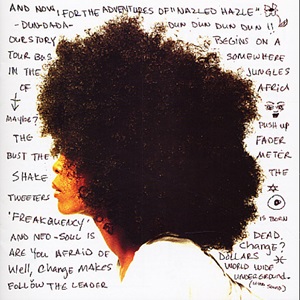 AND NOW! FOR THE ADVENTURES OF "NAZLED HAZLE"
-DUN-DADA- DUN DUN DUN DUN !!
OUR STORY BEGINS ON A
TOUR BUS SOMEWHERE
IN THE JUNGLES
OF AFRICA
MAYBE? PUSH UP
THE FADER
BUST THE METER
SHAKE THE
TWEETERS
'FREAKQUENCY' IS BORN
AND NEO-SOUL IS DEAD.
ARE YOU AFRAID OF Change?
Well, Change MAKES DOLLARS
FOLLOW THE LEADER WORLD WIDE
UNDERGROUND.